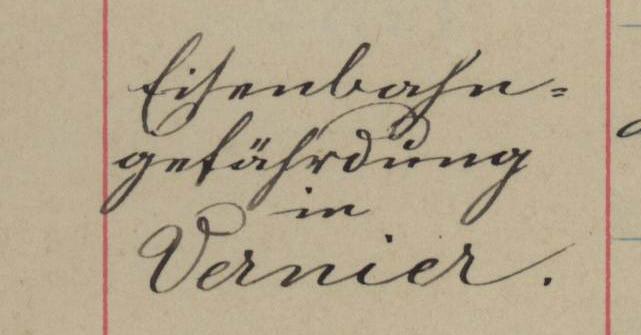 Eisenbahn=
gefährdung
in
Vernier.